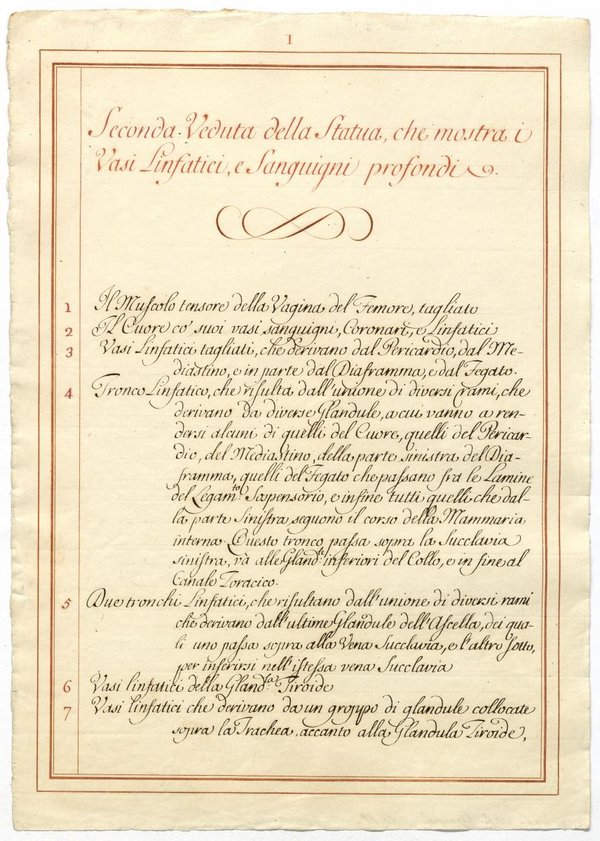 I
Seconda Veduta della Statua, che mostra i
Vasi Linfatici, e Sanguigni profondi.
1 Il Muscolo tensore della Vagina del Femore, tagliato
2 Il Cuore co' suoi vasi sanguigni, Coronari, e Linfatici
3 Vasi Linfatici tagliati, che derivano dal Pericardio, dal Me-
diastino, e in parte dal Diaframma, e dal Fegato.
4 Tronco Linfatico, che risulta dall'unione di diversi rami, che
derivano da diverse Glandule, a cui vanno a ren-
dersi alcuni di quelli del Cuore, quelli del Pericar-
dio, del Mediastino, della parte sinistra del Dia-
framma, quelli del Fegato che passano fra le Lamine
del Legam.to Sospensorio, e infine tutti quelli che dal-
la parte Sinistra seguono il corso della Mammaria
interna. Questo tronco passa sopra la Succlavia
sinistra, và alle Gland.le inferiori del Collo, e in fine al
Canale Toracico.
5 Due tronchi Linfatici, che risultano dall'unione di diversi rami
che derivano dall'ultime Glandule dell'Ascella, dei qua-
li uno passa sopra alla Vena Succlavia, e l'altro sotto,
per inserirsi nell'istessa vena Succlavia
6 Vasi linfatici della Gland.la Tiroide
7 Vasi linfatici che derivano da un groppo di glandule collocate
sopra la Trachea, accanto alla Glandula Tiroide,